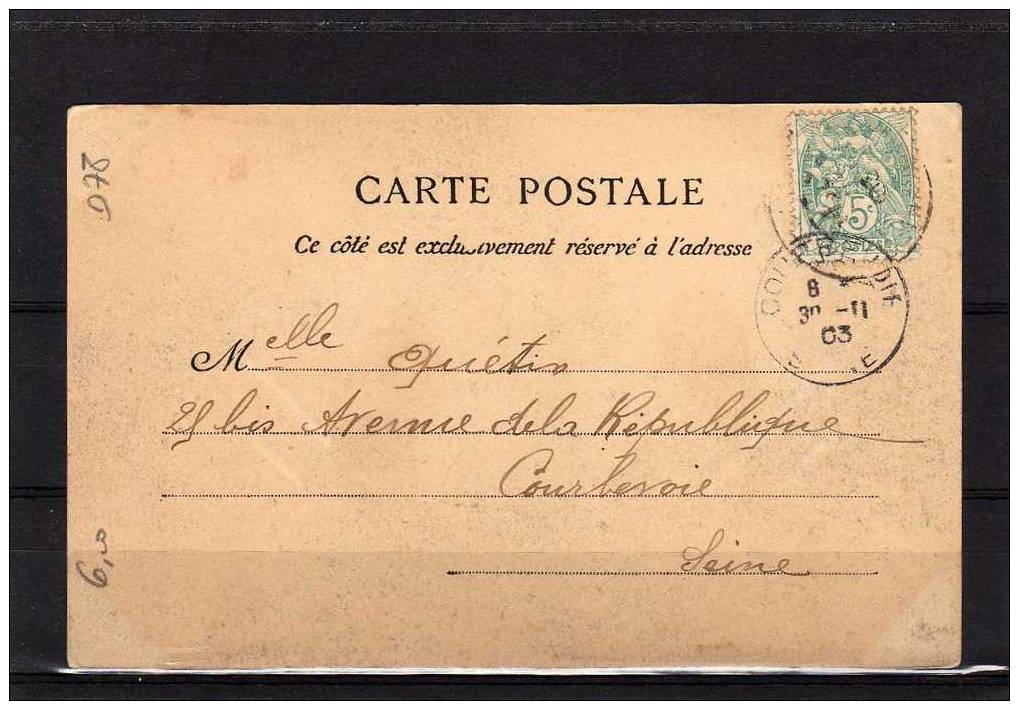 D78
CARTE POSTALE
Ce côté est exclusivement réservé à l'adresse
5c
8
30 -11
03
Melle Quétin
25 bis Avenue de la République
Courbevoie
Seine
6,00